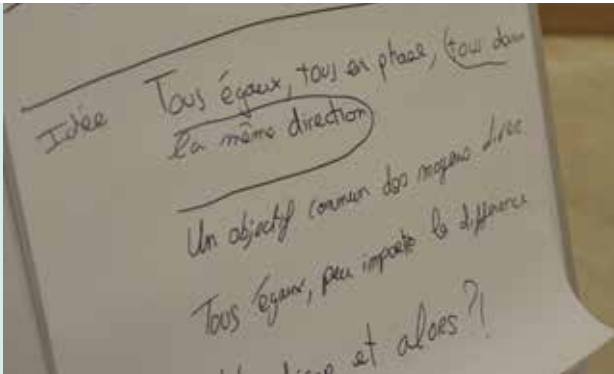 Idée Tous égaux, tous en phase, (tous dans
la même direction)
Un objectif commun des moyens
Tous égaux, peu importe la différence
et alors ?!